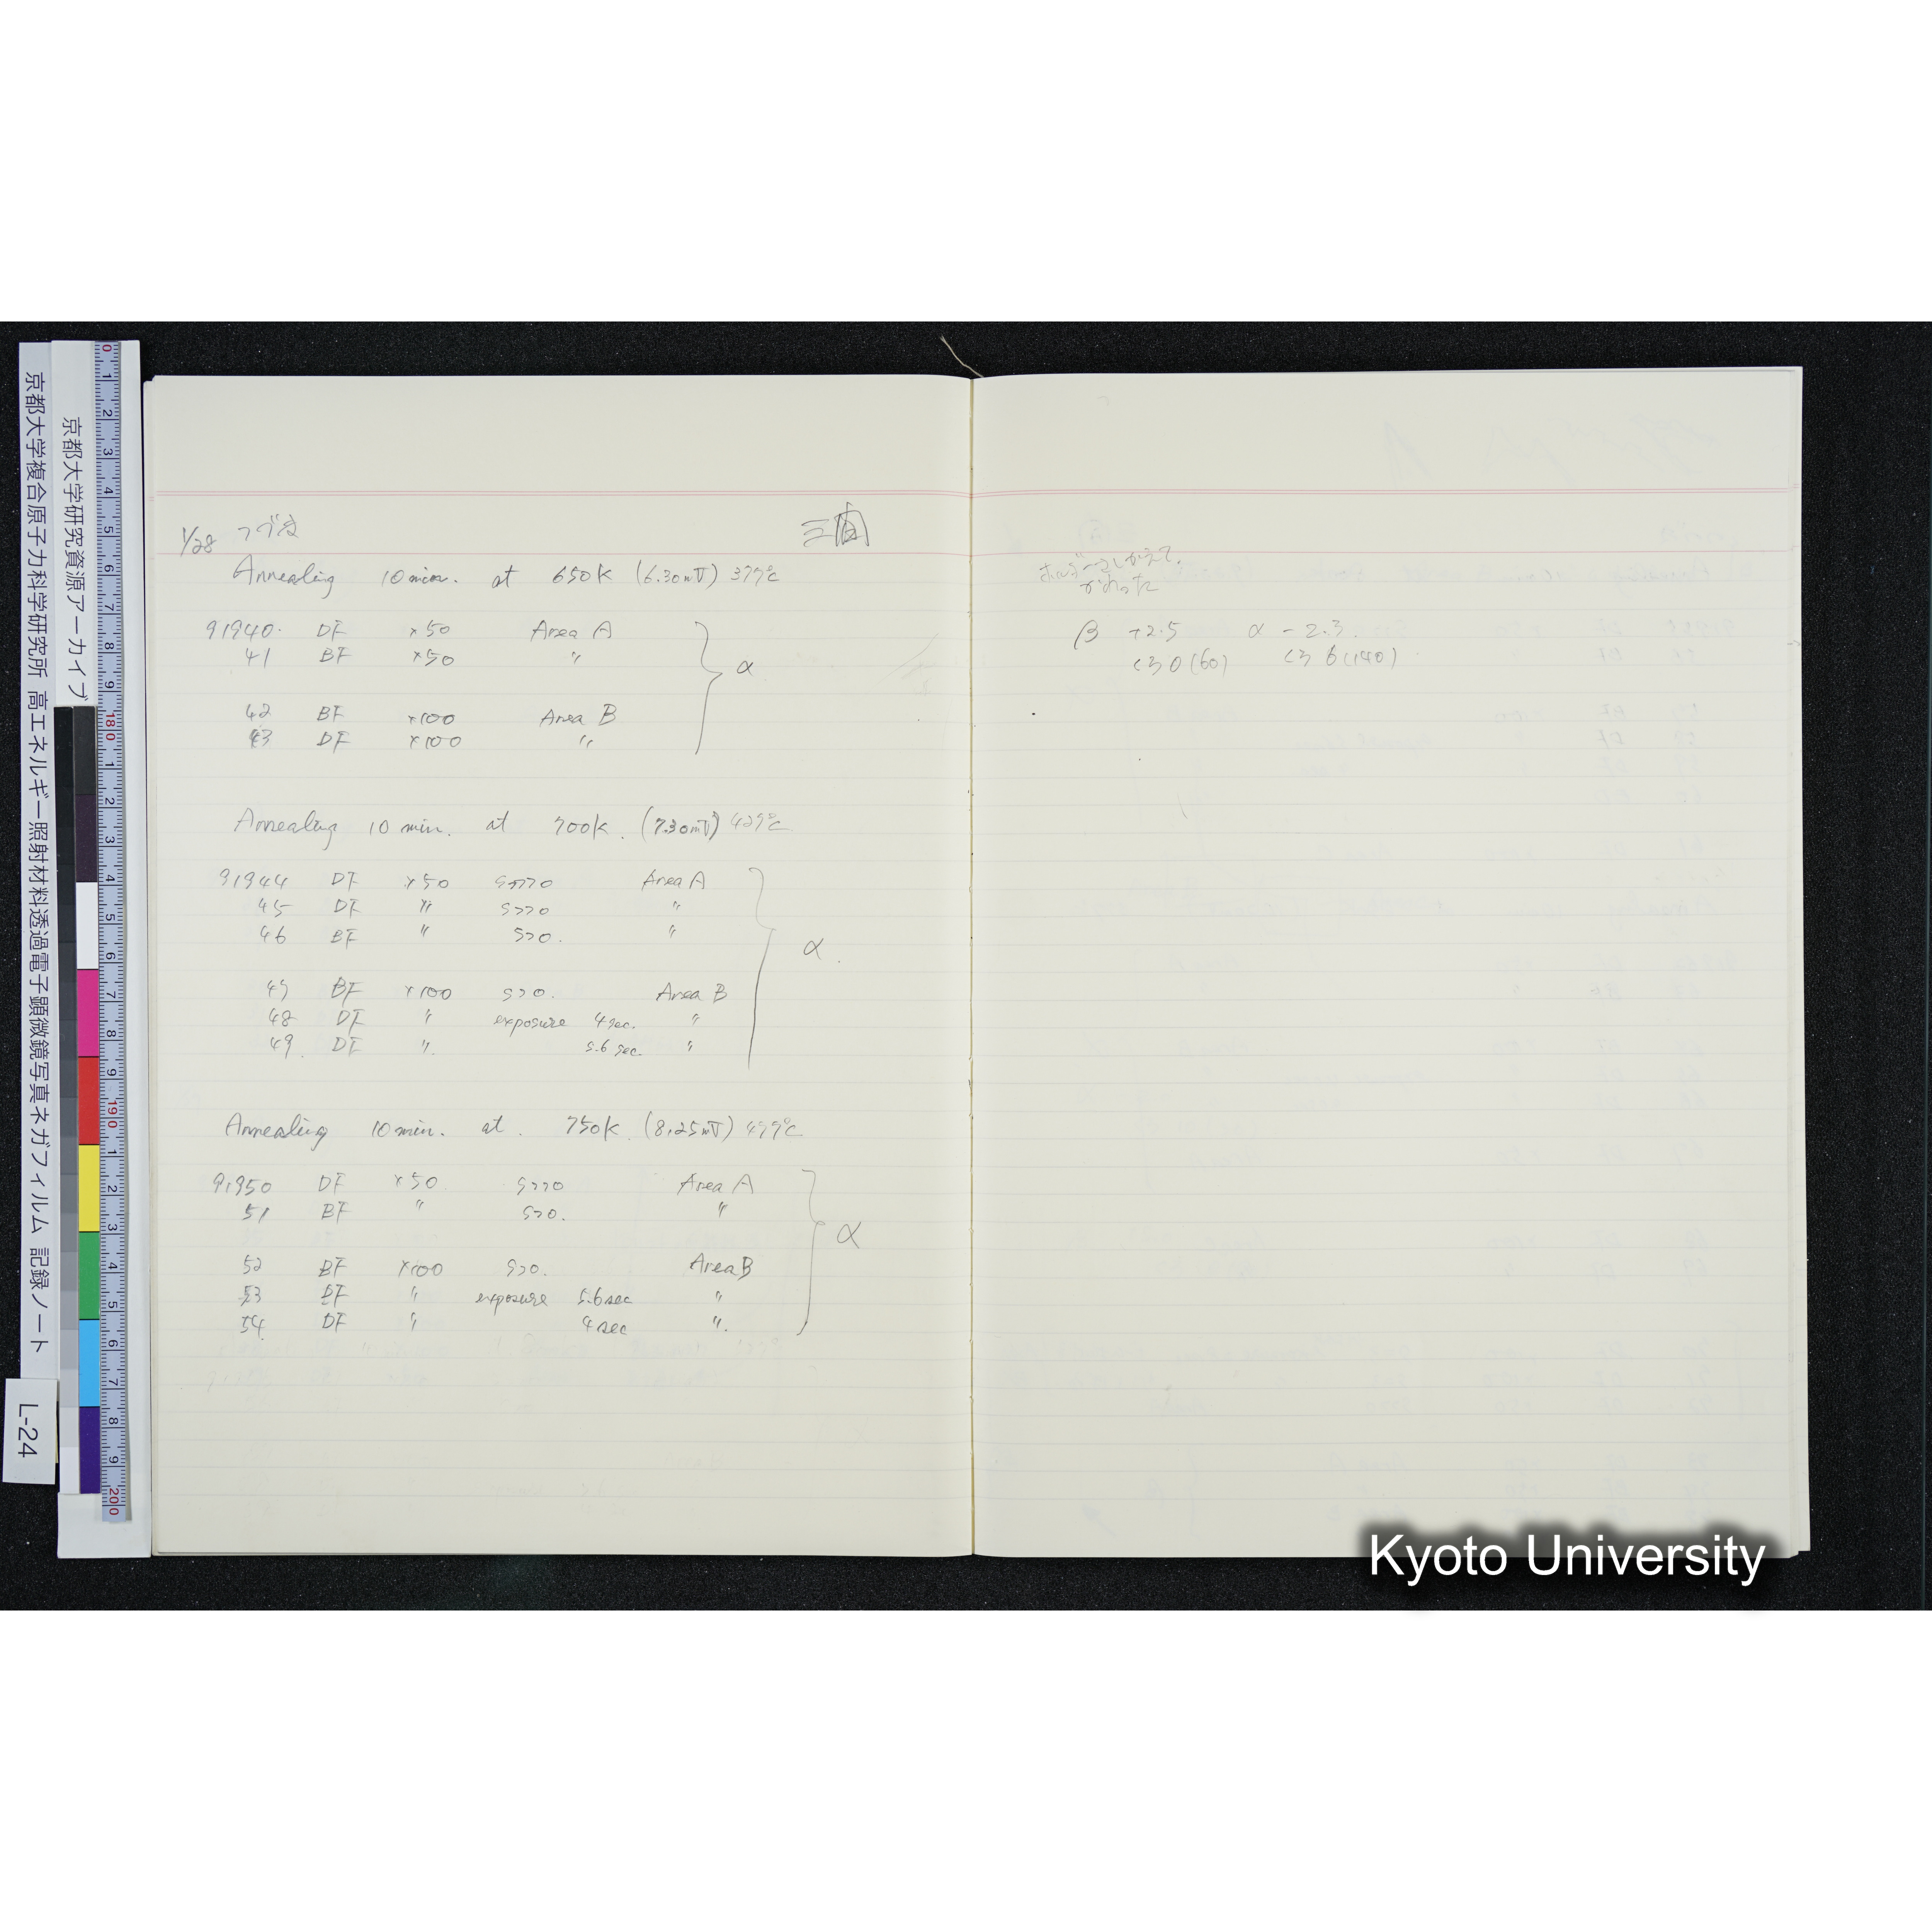 京都大学研究資源アーカイブ
京都大学複合原子力科学研究所 高エネルギー照射材料透過電子顕微鏡写真ネガフィルム 記録ノート
L-24
1/28 つづき
Annealing 10 min. at 650K (6.30mV) 377℃
91940. DF ×50 Area A
41 BF ×50 〃
42 BF ×100 Area B
43 DF ×100 〃
α
Annealing 10 min. at 700K. (7.30mV) 427℃
91944 DF ×50 S>>0 Area A
45 DF 〃 S>>0 〃
46 BF 〃 S>0. 〃
47 BF ×100 S>0. Area B
48 DF 〃 exposure 4 sec. 〃
49. DF 〃. 5.6 sec. 〃
α.
Annealing 10 min. at. 750K. (8.25mV) 477℃
91950 DF ×50. S>>0 Area A
51 BF 〃 S>0. 〃
52 BF ×100 S>0. Area B
53 DF 〃 exposure 5.6 sec 〃
54. DF 〃 4 sec 〃.
α
かわった
β +2.5 α -2.3.
(60) (140)
Kyoto University